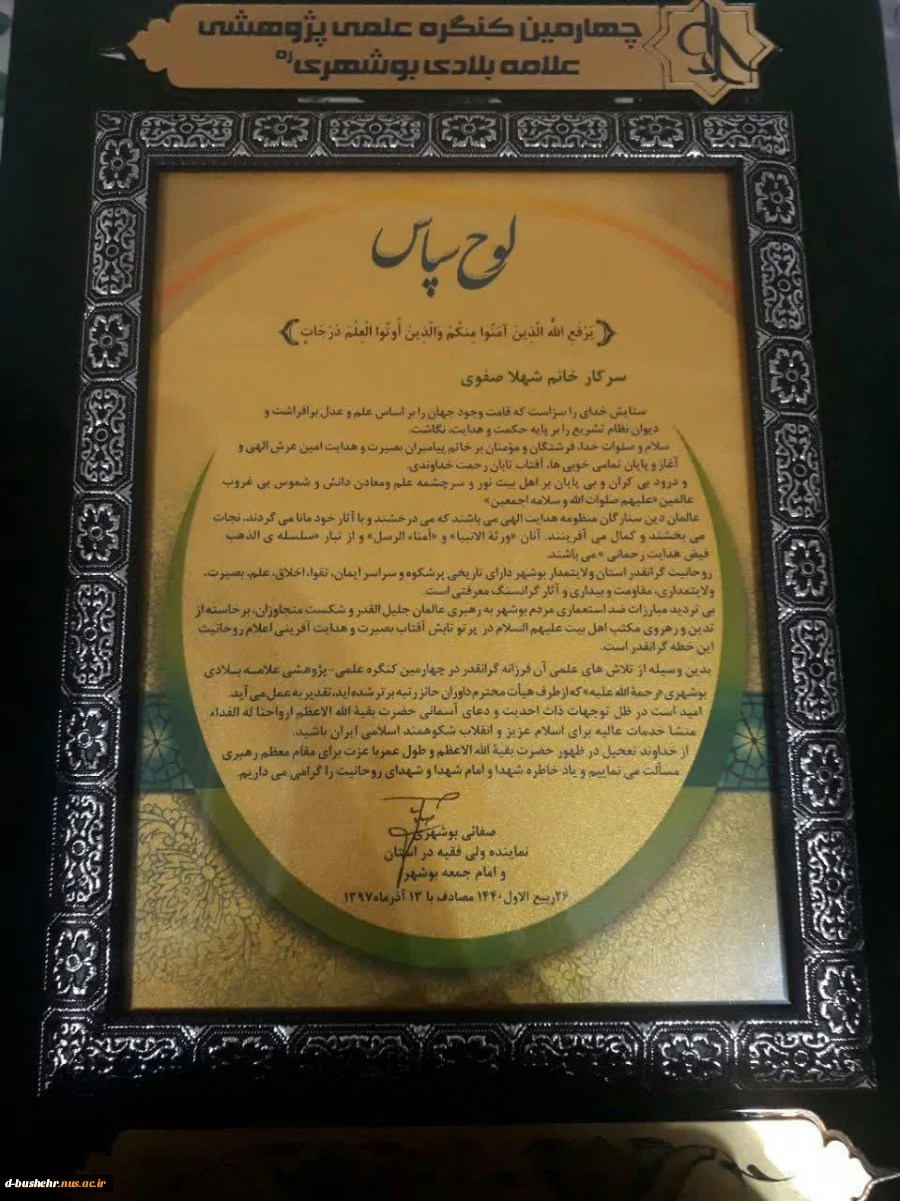 چهارمین کنگره علمی پژوهشی
علامه بلادی بوشهری ره
لوح سپاس
﴿یَرْفَعِ اللَّهُ الَّذِینَ آمَنُوا مِنکُمْ وَالَّذِینَ أُوتُوا الْعِلْمَ دَرَجَاتٍ﴾
سرکار خانم شهلا صفوی
ستایش خدای را سزاست که قامت وجود جهان را بر اساس علم و عدل برافراشت و
دیوان نظام تشریع را بر پایه حکمت و هدایت، نگاشت.
سلام و صلوات خدا، فرشتگان و مؤمنان بر خاتم پیامبران بصیرت و هدایت امین عرش الهی و
آغاز و پایان تمامی خوبی ها، آفتاب تابان رحمت خداوندی.
و درود بی کران و بی پایان بر اهل بیت نور و سرچشمه علم ومعادن دانش و شموس بی غروب
عالمین «علیهم صلوات الله و سلامه اجمعین»
عالمان دین ستارگان منظومه هدایت الهی می باشند که می درخشند و با آثار خود مانا می گردند، نجات
می بخشند و کمال می آفرینند. آنان «ورثة الانبیا» و «أمناء الرسل» و از تبار «سلسله ی الذهب
فیض هدایت رحمانی» می باشند.
روحانیت گرانقدر استان ولایتمدار بوشهر دارای تاریخی پرشکوه و سراسر ایمان، تقوا، اخلاق، علم، بصیرت،
ولایتمداری، مقاومت و بیداری و آثار گرانسنگ معرفتی است.
بی تردید مبارزات ضد استعماری مردم بوشهر به رهبری عالمان جلیل القدر و شکست متجاوزان، برخاسته از
تدین و رهروی مکتب اهل بیت علیهم السلام در پرتو تابش آفتاب بصیرت و هدایت آفرینی اعلام روحانیت
این خطه گرانقدر است.
بدین وسیله از تلاش های علمی آن فرزانه گرانقدر در چهارمین کنگره علمی-پژوهشی علامه بلادی
بوشهری «رحمة الله علیه» که از طرف هیأت محترم داوران حائز رتبه برتر شده اید، تقدیر به عمل می آید.
امید است در ظل توجهات ذات احدیت و دعای آسمانی حضرت بقیة الله الاعظم ارواحنا له الفداء
منشا خدمات عالیه برای اسلام عزیز و انقلاب شکوهمند اسلامی ایران باشید.
از خداوند تعجیل در ظهور حضرت بقیة الله الاعظم و طول عمر با عزت برای مقام معظم رهبری
مسألت می نماییم و یاد خاطره شهدا و امام شهدا و شهدای روحانیت را گرامی می داریم.
صفائی بوشهری
نماینده ولی فقیه در استان
و امام جمعه بوشهر
۲۶ربیع الاول۱۴۴۰ مصادف با ۱۳ آذرماه۱۳۹۷
d-bushehr.nus.ac.ir